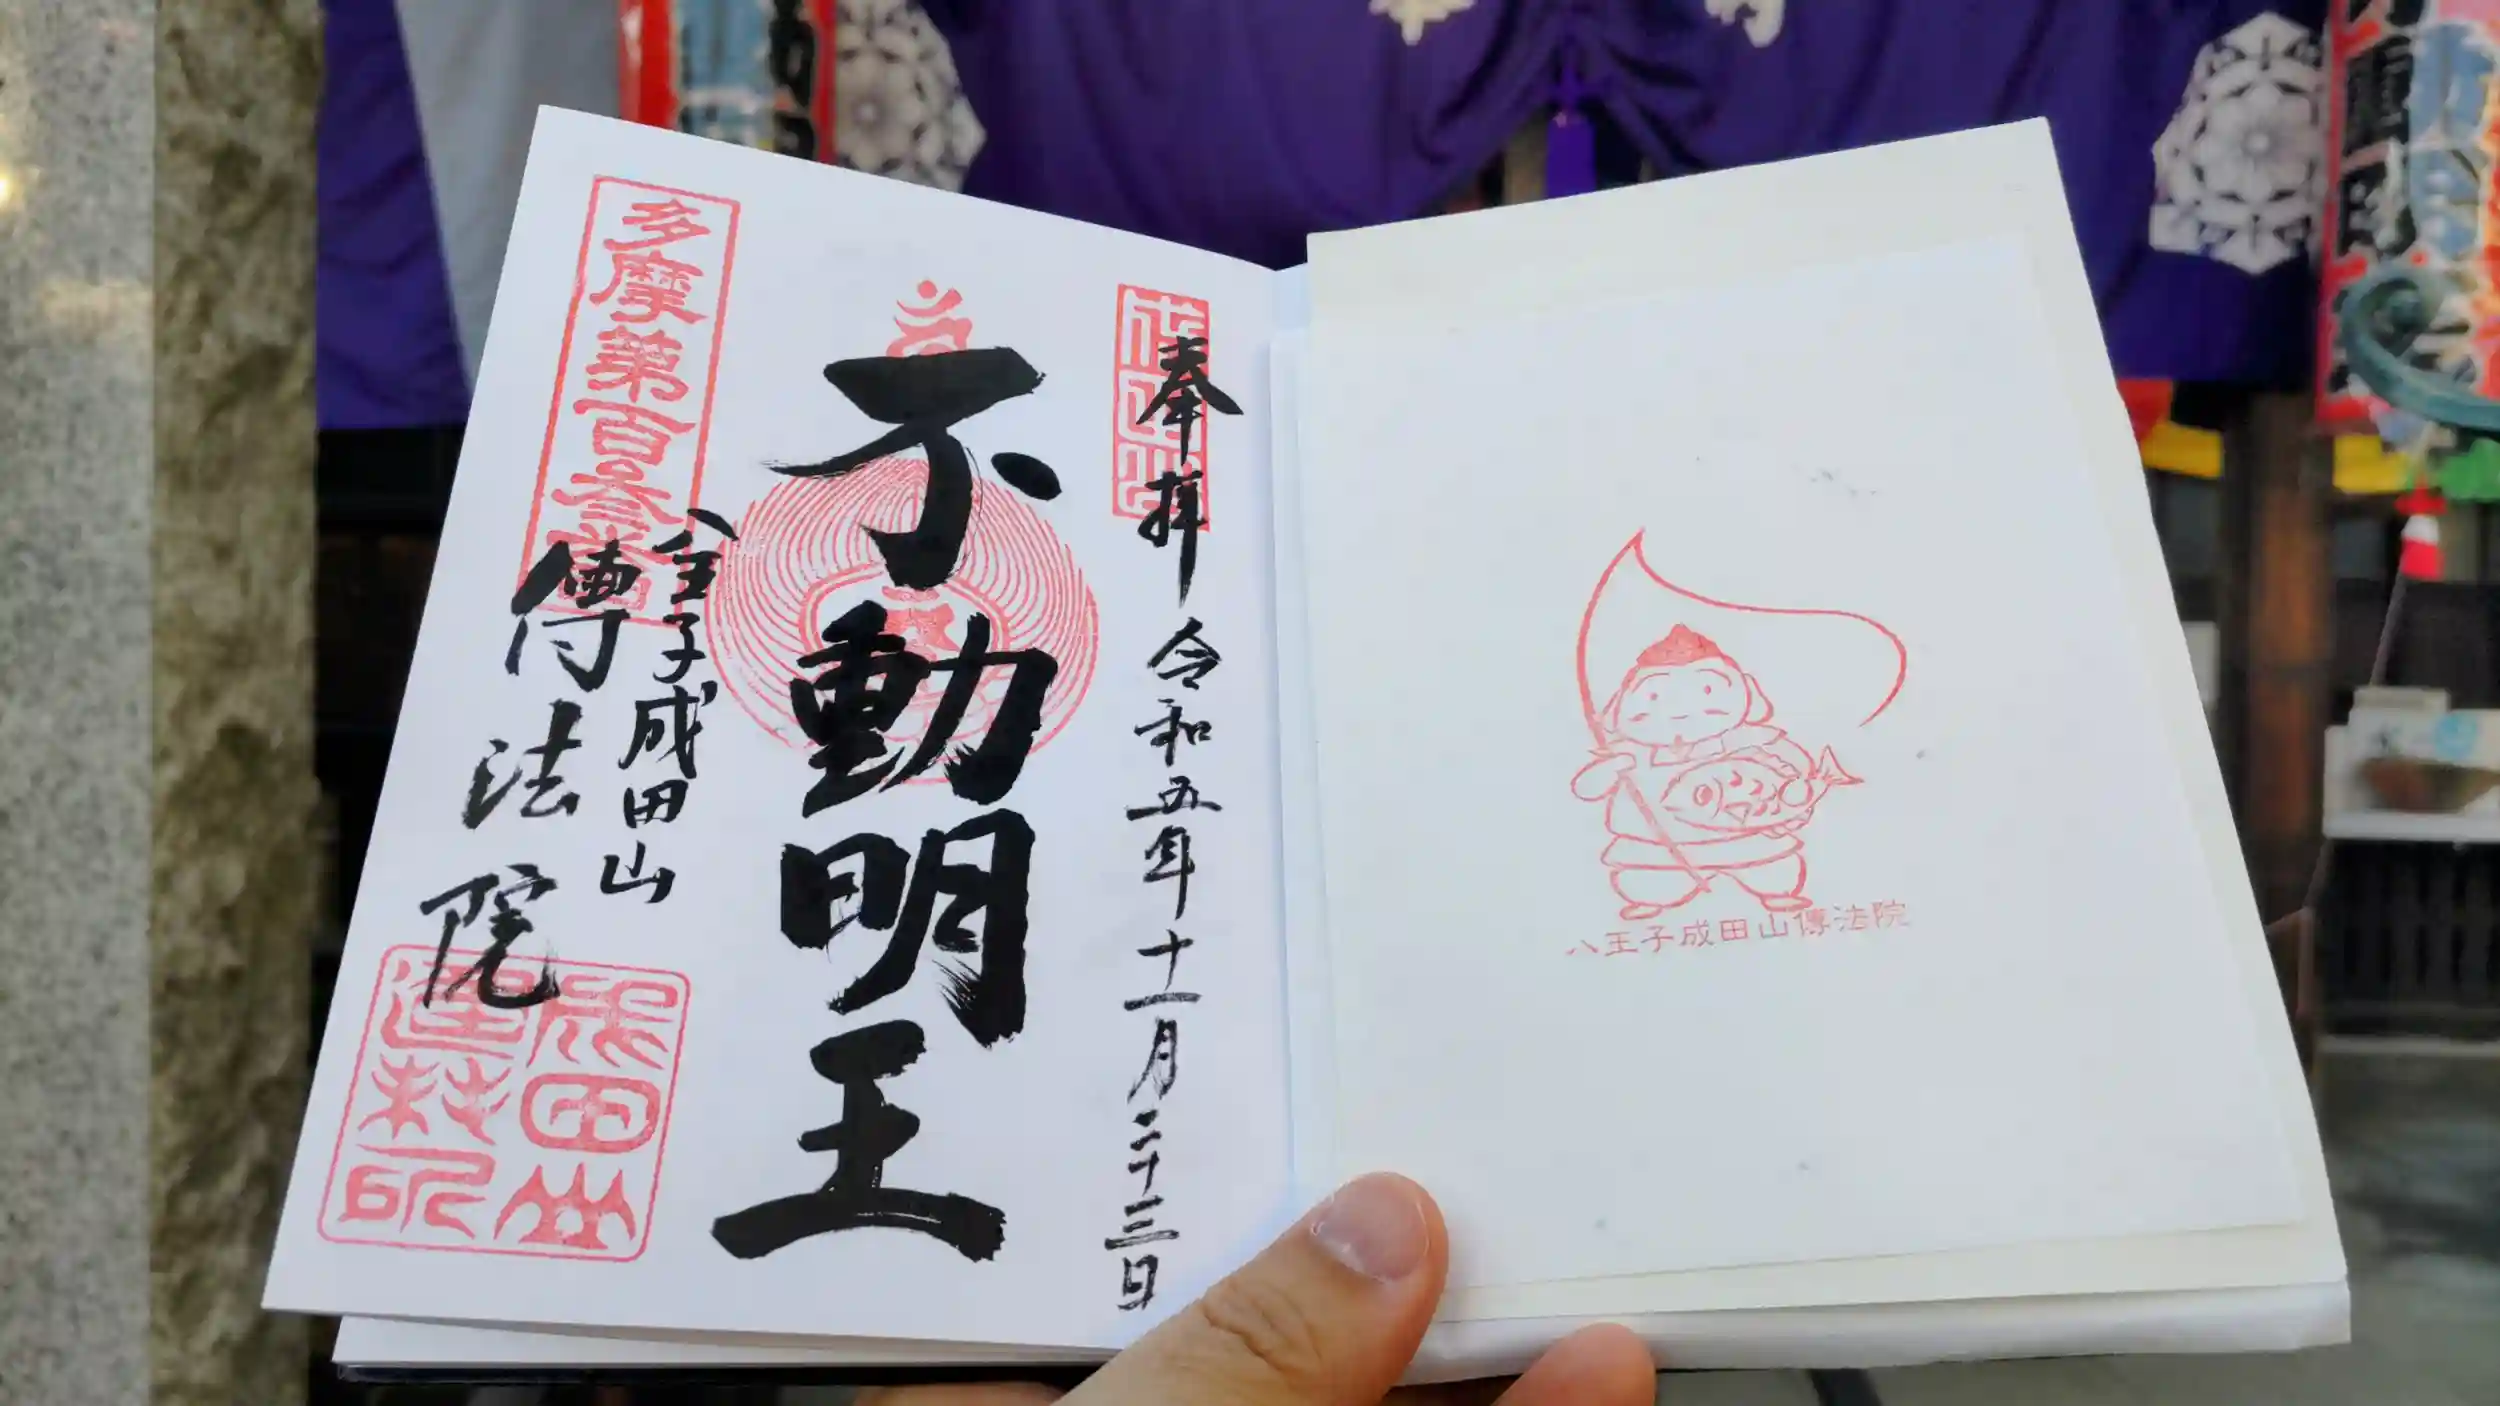 奉拝 令和五年十一月二十三日
不動明王
八王子成田山
傳法院
多摩第百参番
成田山
八王子成田山傳法院